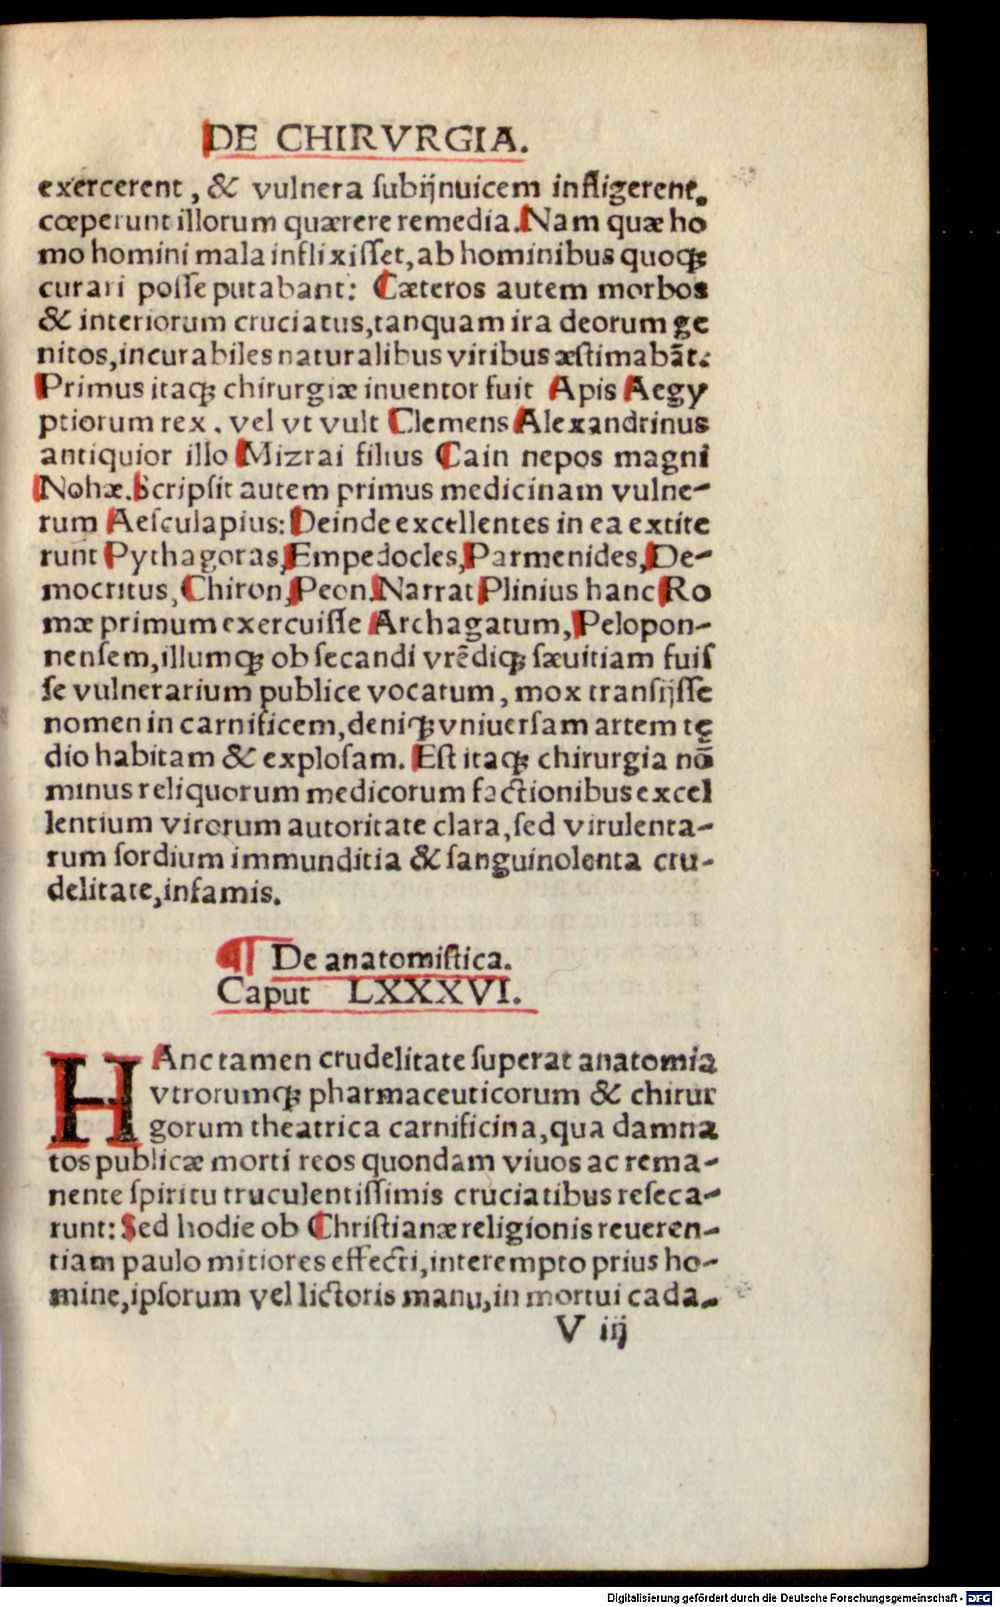 DE CHIRVRGIA.
exercerent, & vulnera subijnuicem infligerent,
cœperunt illorum quærere remedia. Nam quæ ho
mo homini mala inflixisset, ab hominibus quoqꝫ
curari posse putabant: Cæteros autem morbos
& interiorum cruciatus, tanquam ira deorum ge
nitos, incurabiles naturalibus viribus æstimabãt.
Primus itaqꝫ chirurgiæ inuentor fuit Apis Aegy
ptiorum rex, vel vt vult Clemens Alexandrinus
antiquior illo Mizrai filius Cain nepos magni
Nohæ. Scripsit autem primus medicinam vulne-
rum Aesculapius: Deinde excellentes in ea extite
runt Pythagoras, Empedocles, Parmenides, De-
mocritus, Chiron, Peon. Narrat Plinius hanc Ro
mæ primum exercuisse Archagatum, Pelopon-
nensem, illumqꝫ ob secandi vrẽdiqꝫ sæuitiam fuis
se vulnerarium publice vocatum, mox transijsse
nomen in carnificem, deniqꝫ vniuersam artem tę
dio habitam & explosam. Est itaqꝫ chirurgia nõ
minus reliquorum medicorum factionibus excel
lentium virorum autoritate clara, sed virulenta-
rum sordium immunditia & sanguinolenta cru-
delitate, infamis.
¶ De anatomistica.
Caput LXXXVI.
HAnc tamen crudelitate superat anatomia
vtrorumqꝫ pharmaceuticorum & chirur
gorum theatrica carnificina, qua damna
tos publicæ morti reos quondam viuos ac rema-
nente spiritu truculentissimis cruciatibus reseca-
runt: Sed hodie ob Christianæ religionis reueren-
tiam paulo mitiores effecti, interempto prius ho-
mine, ipsorum vel lictoris manu, in mortui cada-
V iij
Digitalisierung gefördert durch die Deutsche Forschungsgemeinschaft - DFG